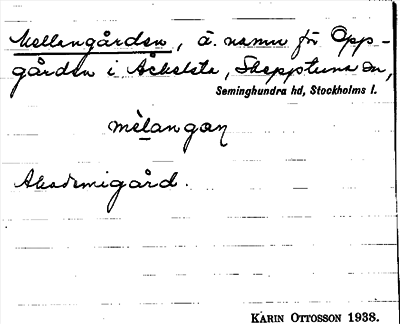 Mellangården, ä. namn för Opp-
gården i Åshelsta, Skepptuna sn,
Seminghundra hd, Stockholms l.
mèlangan
Akademigård.
KARIN OTTOSSON 1938.